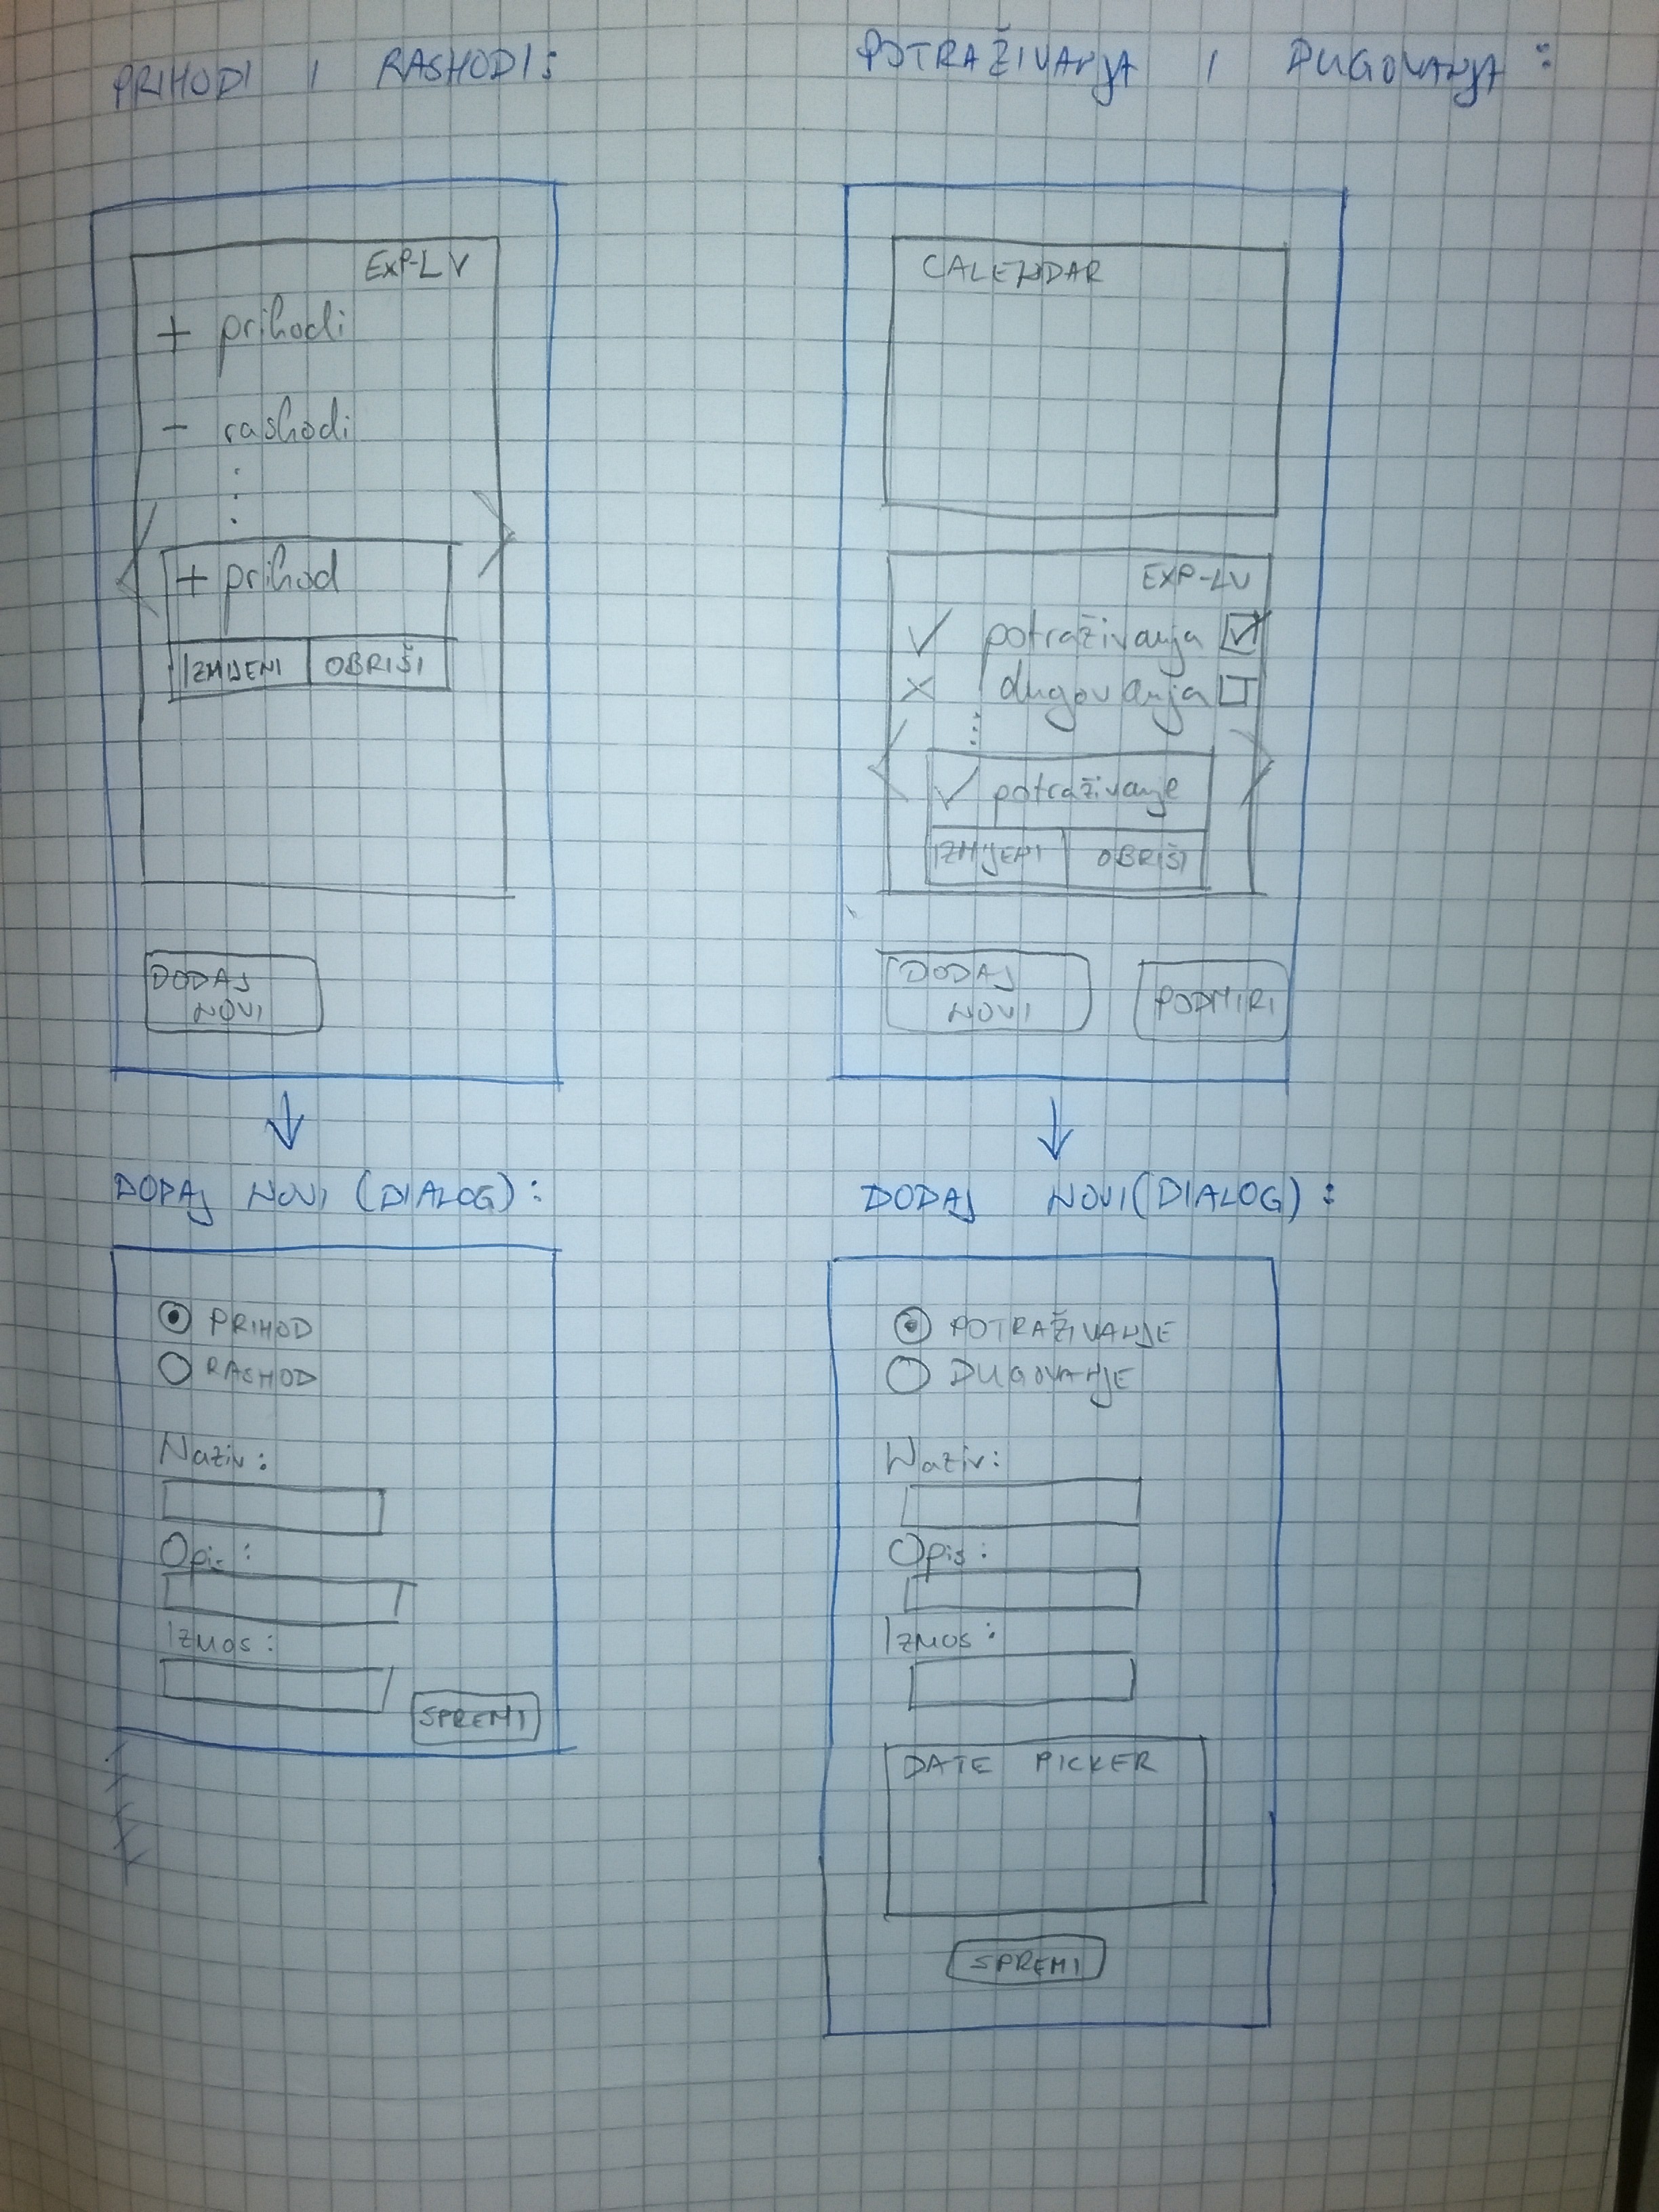 PRIHODI I RASHODI:
EXP-LV
+ prihodi
- rashodi
+ prihod
IZMIJENI OBRIŠI
DODAJ
NOVI
DODAJ NOVI (DIALOG):
PRIHOD
RASHOD
Naziv:
Opis:
Iznos:
SPREMI
POTRAŽIVANJA I DUGOVANJA:
CALENDAR
EXP-LV
✓ potraživanja ☑
× dugovanja ☐
✓ potraživanje
IZMIJENI OBRIŠI
DODAJ
NOVI
PODMIRI
DODAJ NOVI (DIALOG):
POTRAŽIVANJE
DUGOVANJE
Naziv:
Opis:
Iznos:
DATE PICKER
SPREMI